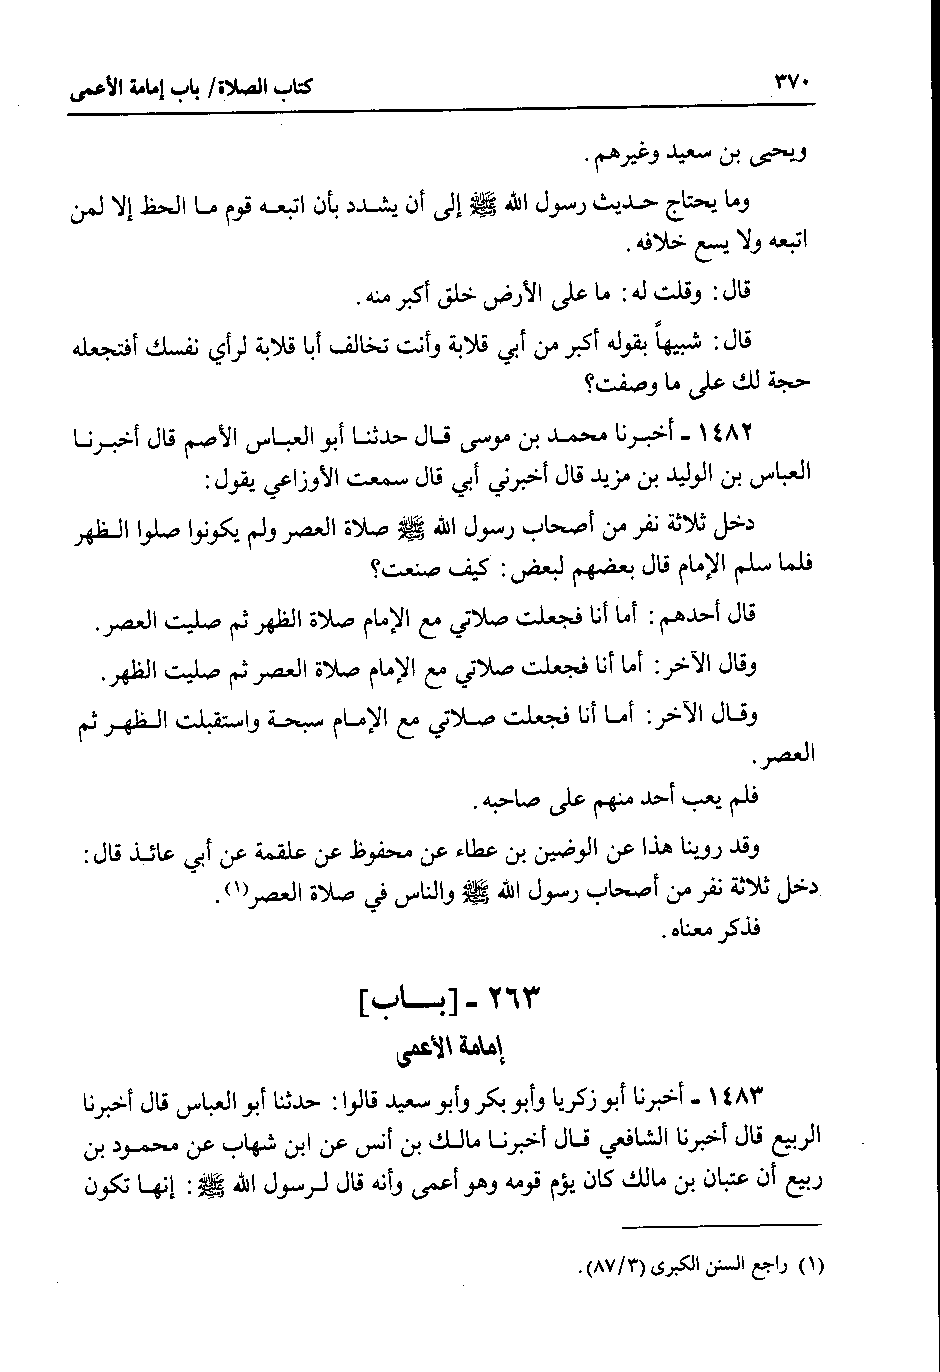 ٣٧٠
كتاب الصلاة/ باب إمامة الأعمى
ويحيى بن سعيد وغيرهم.
وما يحتاج حديث رسول الله ﷺ إلى أن يشدد بأن اتبعه قوم ما الحظ إلا لمن
اتبعه ولا يسع خلافه.
قال: وقلت له: ما على الأرض خلق أكبر منه.
قال: شبيهاً بقوله أكبر من أبي قلابة وأنت تخالف أبا قلابة لرأي نفسك أفتجعله
حجة لك على ما وصفت؟
١٤٨٢ - أخبرنا محمد بن موسى قال حدثنا أبو العباس الأصم قال أخبرنا
العباس بن الوليد بن مزيد قال أخبرني أبي قال سمعت الأوزاعي يقول:
دخل ثلاثة نفر من أصحاب رسول الله ﷺ صلاة العصر ولم يكونوا صلوا الظهر
فلما سلم الإمام قال بعضهم لبعض: كيف صنعت؟
قال أحدهم: أما أنا فجعلت صلاتي مع الإمام صلاة الظهر ثم صليت العصر.
وقال الآخر: أما أنا فجعلت صلاتي مع الإمام صلاة العصر ثم صليت الظهر.
وقال الآخر: أما أنا فجعلت صلاتي مع الإمام سبحة واستقبلت الظهر ثم
العصر.
فلم يعب أحد منهم على صاحبه.
وقد روينا هذا عن الوضين بن عطاء عن محفوظ عن علقمة عن أبي عائذ قال:
دخل ثلاثة نفر من أصحاب رسول الله ﷺ والناس في صلاة العصر(١).
فذكر معناه.
٢٦٣ - [باب]
إمامة الأعمى
١٤٨٣ - أخبرنا أبو زكريا وأبو بكر وأبو سعيد قالوا: حدثنا أبو العباس قال أخبرنا
الربيع قال أخبرنا الشافعي قال أخبرنا مالك بن أنس عن ابن شهاب عن محمود بن
ربيع أن عتبان بن مالك كان يؤم قومه وهو أعمى وأنه قال لرسول الله ﷺ: إنها تكون
(١) راجع السنن الكبرى (٨٧/٣).